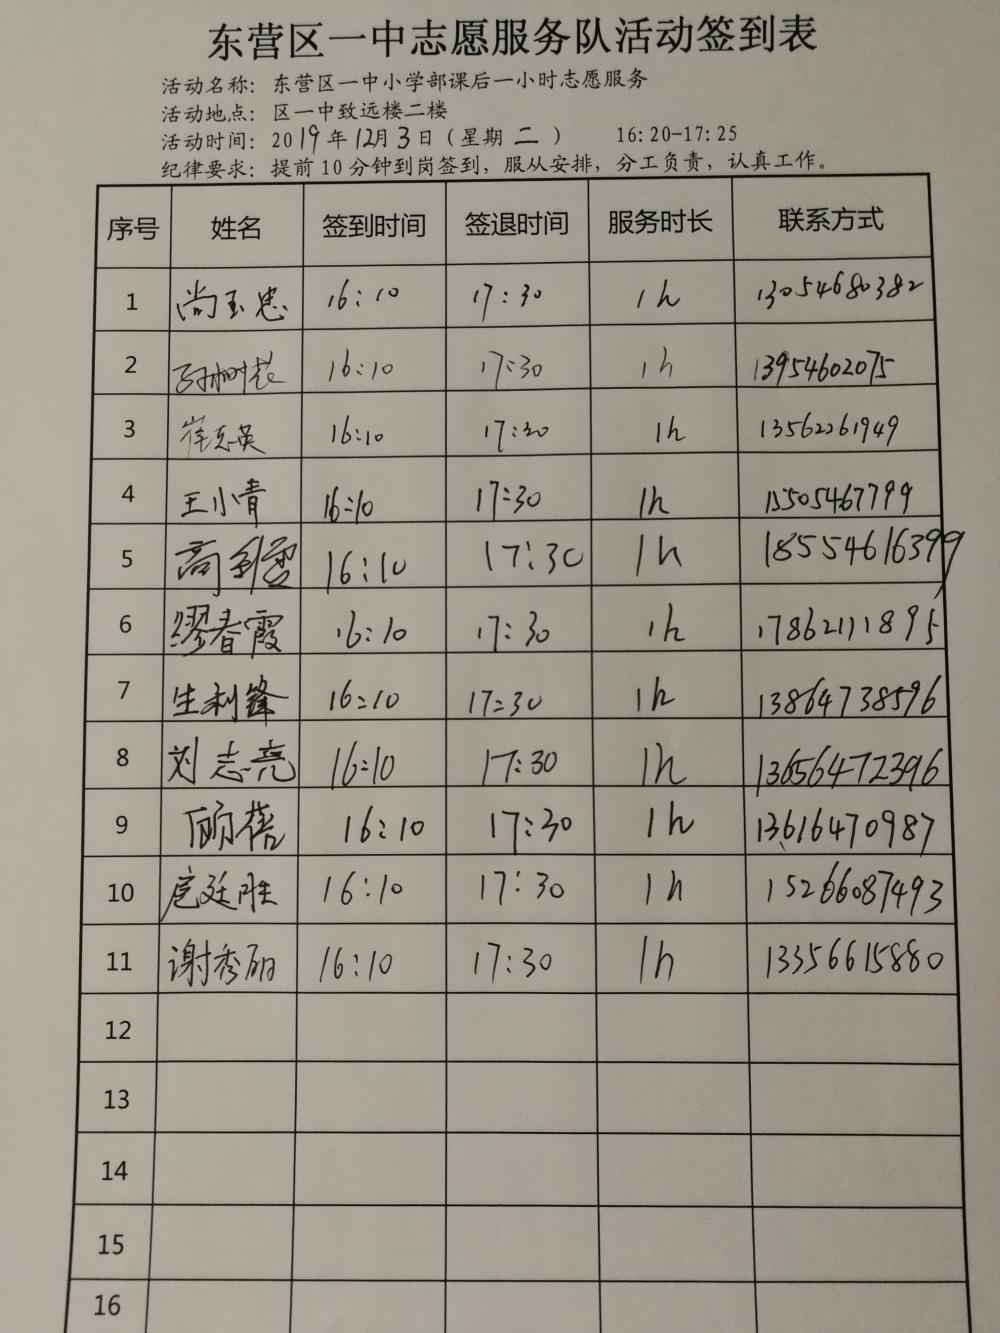 东营区一中志愿服务队活动签到表
活动名称：东营区一中小学部课后一小时志愿服务
活动地点：区一中致远楼二楼
活动时间：2019年12月3日（星期二） 16:20-17:25
纪律要求：提前10分钟到岗签到，服从安排，分工负责，认真工作。
序号 姓名 签到时间 签退时间 服务时长 联系方式
1 尚玉忠 16:10 17:30 1h 13054680382
2 16:10 17:30 1h 13954602075
3 崔志英 16:10 17:30 1h 13562261949
4 王小青 16:10 17:30 1h 15505467799
5 高 16:10 17:30 1h 18554616399
6 缪春霞 16:10 17:30 1h 17862111895
7 生利锋 16:10 17:30 1h 13864738596
8 刘志亮 16:10 17:30 1h 13656472396
9 顾蓓 16:10 17:30 1h 13616470987
10 扈廷胜 16:10 17:30 1h 15266087493
11 谢秀丽 16:10 17:30 1h 13356615880
12
13
14
15
16